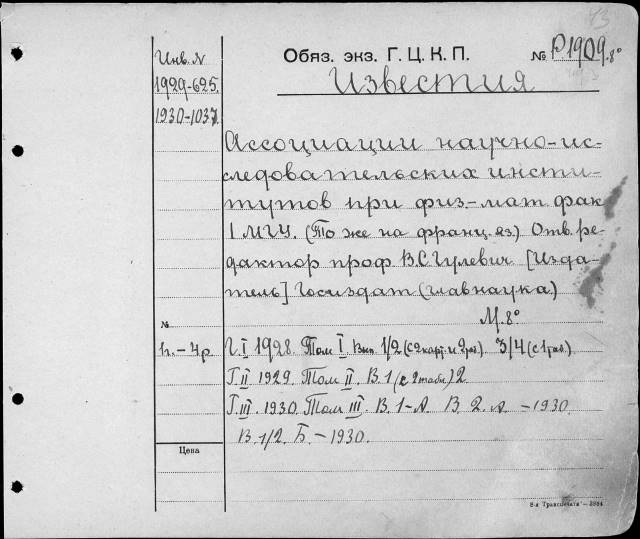 43
Инв. N
Обяз. экз. Г. Ц. К. П.
№ Р1909.8°
1929-625.
Известия
1930-1037.
Ассоциации научно-ис-
следовательских инсти-
тутов при физ.-мат. фак
I МГУ. (То же на франц. яз.) Отв. ре-
дактор проф. В.С. Гулевич [Изда-
тель] Госиздат (Главнаука.)
М. 8°
№
ц. - 4р.
Г. I 1928. Том I. Вып 1/2 (с 2 карт. и 2 таб.) 3/4 (с 1 таб.)
Г. II 1929. Том II. В. 1 (с 2 табл) 2.
Г. III. 1930. Том III. В. 1-А. В. 2. А. - 1930.
В. 1/2. Б. - 1930.
Цена
8-я Транспечать - 3884